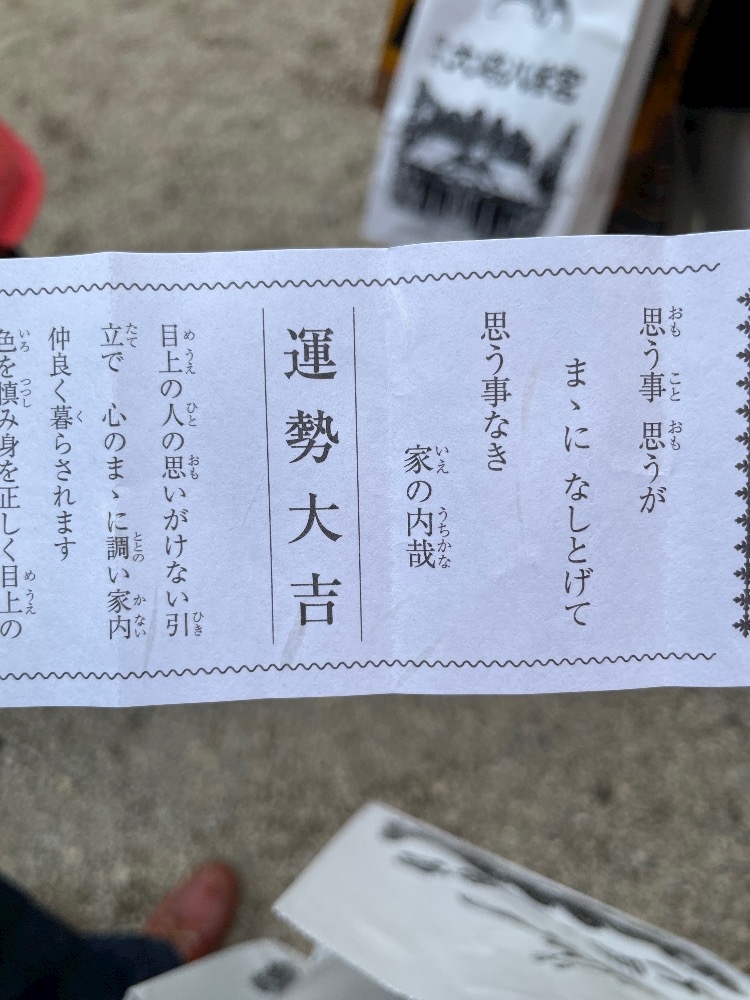 思う事 思うが
まゝに なしとげて
思う事なき
家の内哉
運勢大吉
目上の人の思いがけない引
立で 心のまゝに調い家内
仲良く暮らされます
色を慎み身を正しく目上の